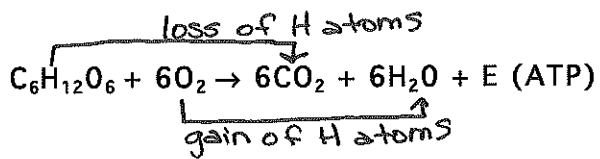 loss of H atoms
C₆H₁₂O₆ + 6O₂ → 6CO₂ + 6H₂O + E (ATP)
gain of H atoms